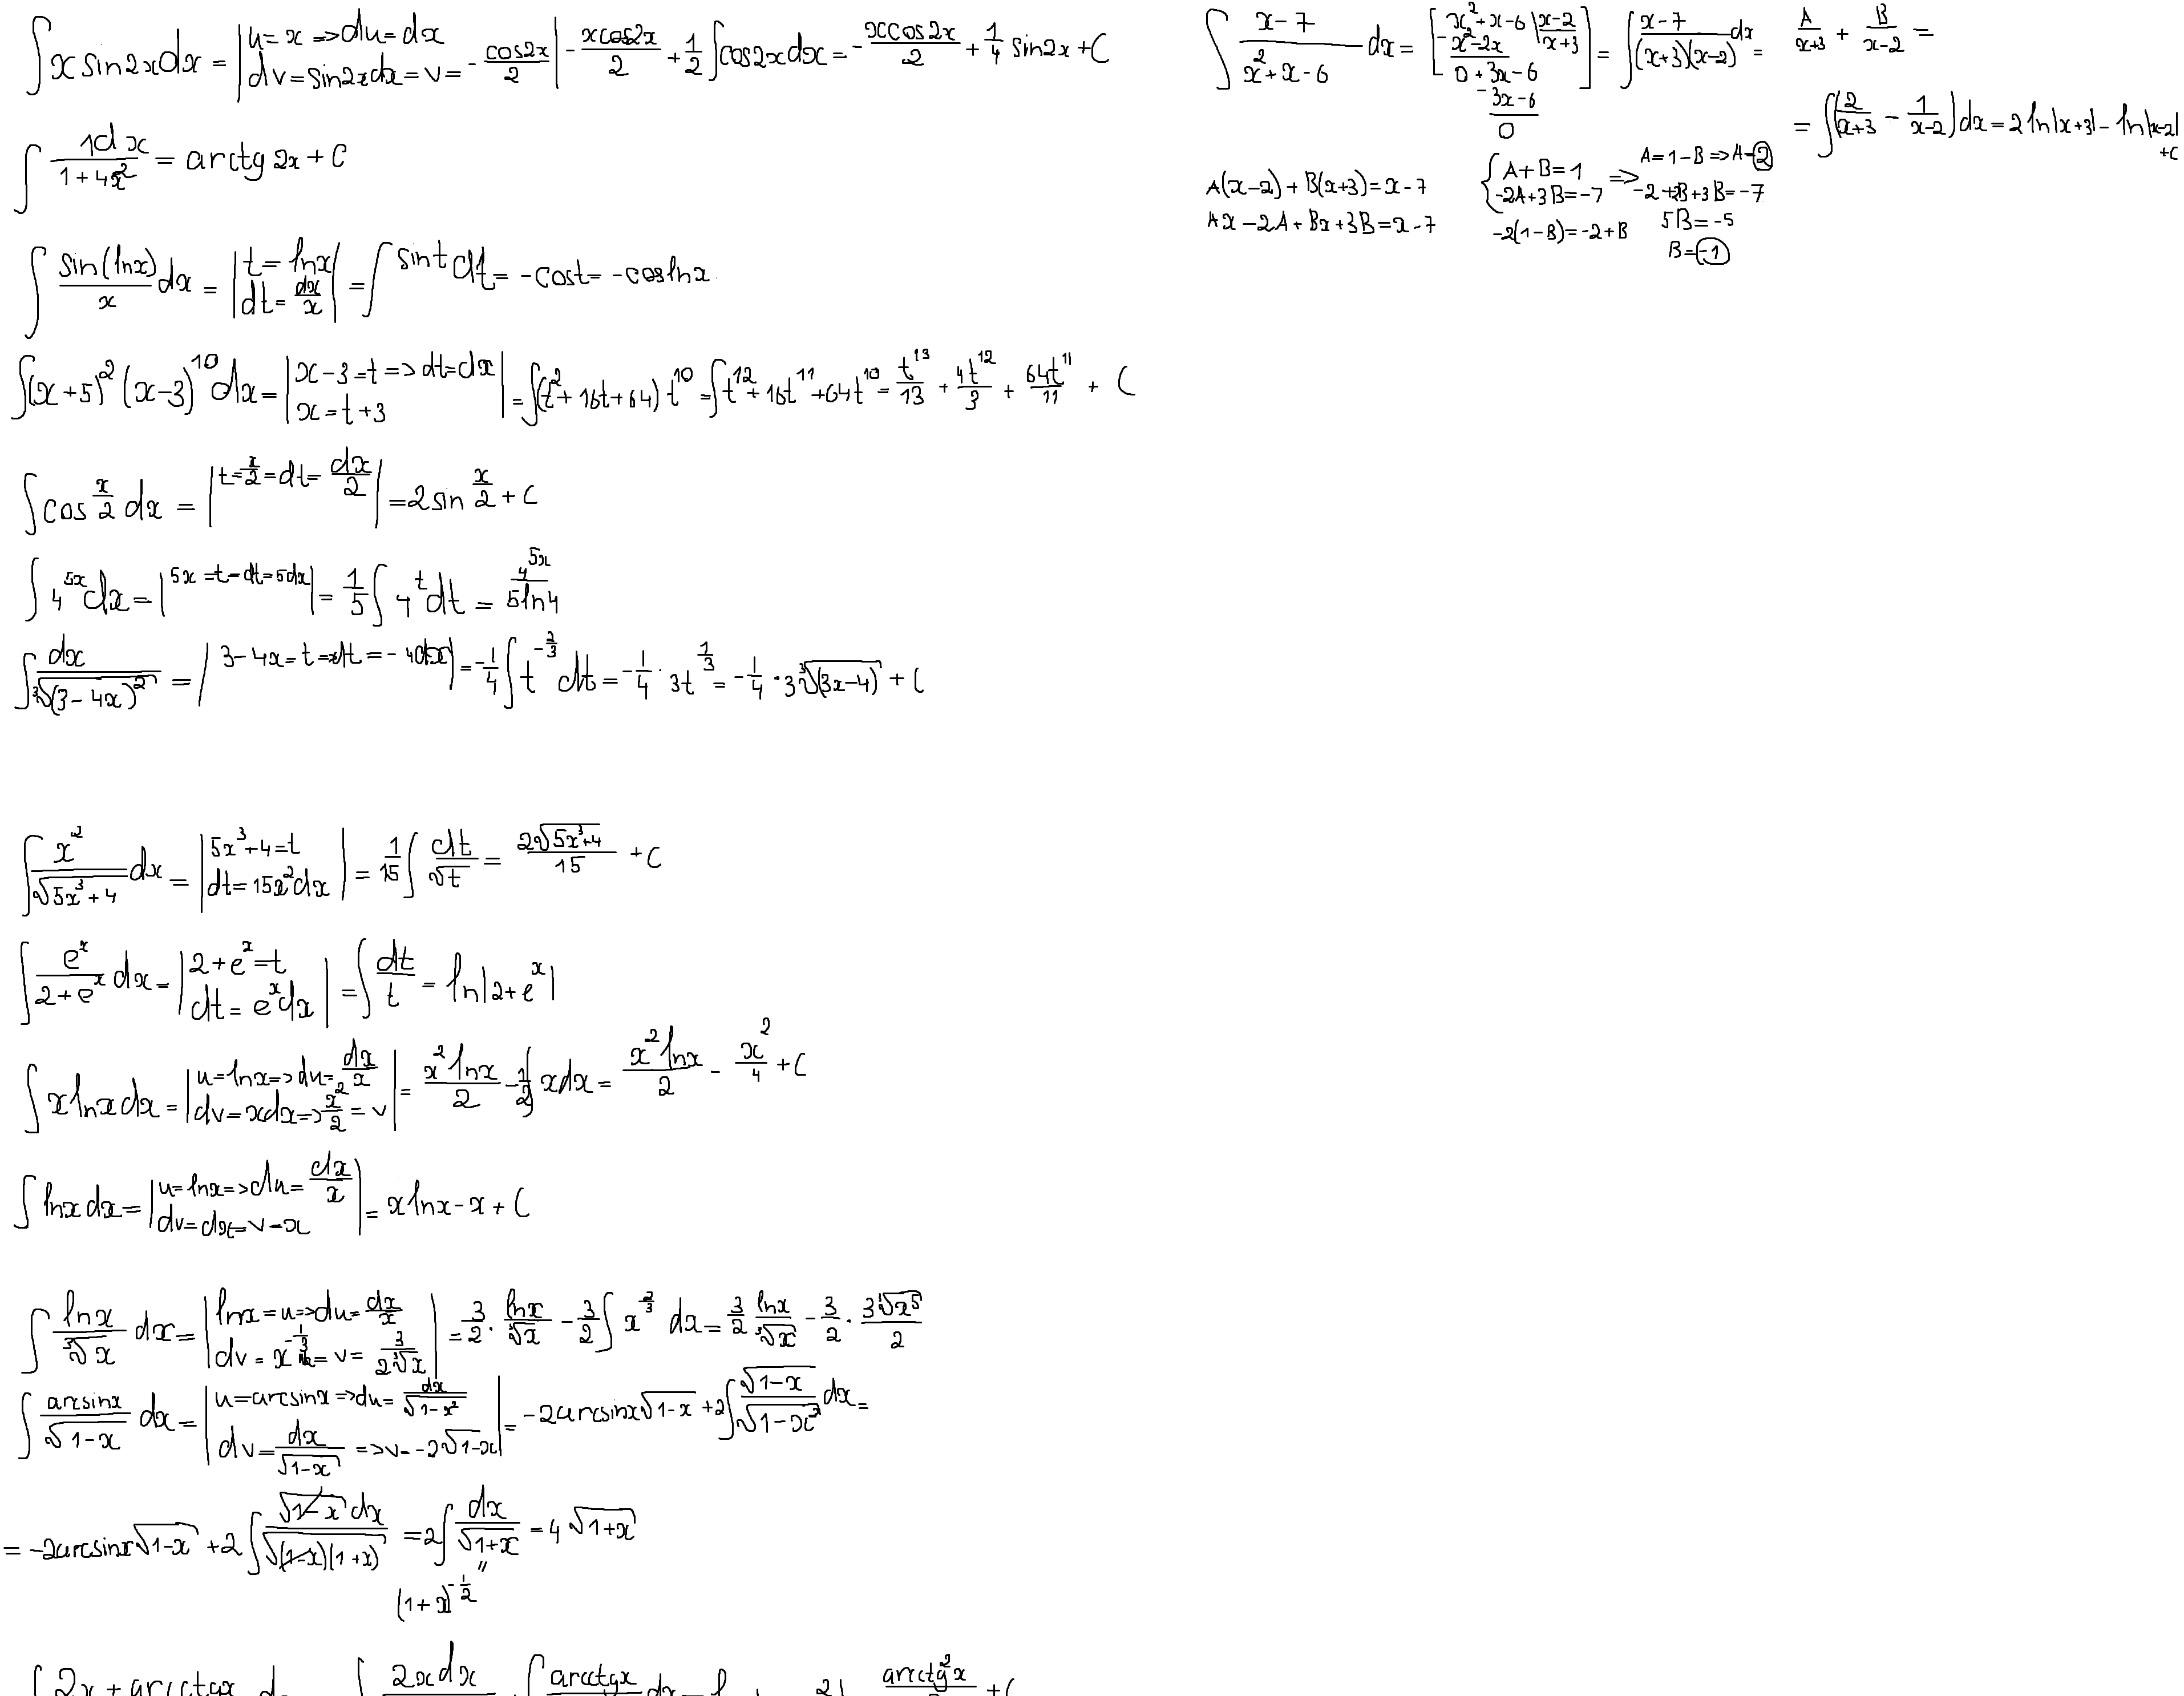 ∫ x sin2x dx = | u = x => du = dx ; dv = sin2x dx = v = - cos2x/2 | - xcos2x/2 + 1/2 ∫ cos2x dx = - xcos2x/2 + 1/4 sin2x + C
∫ 1dx/(1+4x²) = arctg 2x + C
∫ sin(lnx)/x dx = | t = lnx ; dt = dx/x | = ∫ sint dt = -cost = -coslnx
∫ (x+5)² (x-3)¹⁰ dx = | x-3=t => dt=dx ; x=t+3 | = ∫(t²+16t+64) t¹⁰ = ∫ t¹²+16t¹¹+64t¹⁰ = t¹³/13 + 4t¹²/3 + 64t¹¹/11 + C
∫ cos x/2 dx = | t=x/2 = dt = dx/2 | = 2 sin x/2 + C
∫ 4^5x dx = | 5x = t = dt = 5dx | = 1/5 ∫ 4^t dt = 4^5x/5ln4
∫ dx/∛(3-4x)² = | 3-4x = t => dt = -4dx | = -1/4 ∫ t^(-2/3) dt = -1/4 · 3t^(1/3) = -1/4 · 3∛(3x-4) + C
∫ x²/√(5x³+4) dx = | 5x³+4=t ; dt=15x²dx | = 1/15 ∫ dt/√t = 2√(5x³+4)/15 + C
∫ e^x/(2+e^x) dx = | 2+e^x=t ; dt = e^x dx | = ∫ dt/t = ln|2+e^x|
∫ x lnx dx = | u=lnx => du=dx/x ; dv=xdx => x²/2 = v | = x²lnx/2 - 1/2 ∫ xdx = x²lnx/2 - x²/4 + C
∫ lnx dx = | u=lnx => du=dx/x ; dv=dx=v=x | = x lnx - x + C
∫ lnx/∛x dx = | lnx=u => du=dx/x ; dv = x^(-1/3) dx = v = 3/(2∛x) | = 3/2 · lnx/∛x - 3/2 ∫ x^(2/3) dx = 3/2 lnx/∛x - 3/2 · 3∛x⁵/2
∫ arcsinx/√(1-x) dx = | u=arcsinx => du=dx/√(1-x²) ; dv=dx/√(1-x) => v=-2√(1-x) | = -2arcsinx√(1-x) + 2∫ √(1-x)/√(1-x²) dx =
= -2arcsinx√(1-x) + 2∫ √(1-x) dx/√((1-x)(1+x)) = 2∫ dx/√(1+x) = 4√(1+x)
" (1+x)^(-1/2)
∫ 2x + arcctgx
∫ 2xdx
∫ arcctgx dx
arcctg²x + C
∫ (x-7)/(x²+x-6) dx = [ x²+x-6 | x-2 ; - x²-2x | x+3 ; 0+3x-6 ; - 3x-6 ; 0 ] = ∫ (x-7)/((x+3)(x-2)) dx = A/(x+3) + B/(x-2) =
= ∫ (2/(x+3) - 1/(x-2)) dx = 2ln|x+3| - ln|x-2| + C
A(x-2) + B(x+3) = x-7
Ax-2A+Bx+3B=x-7
{ A+B=1 ; -2A+3B=-7 =>
-2(1-B)=-2+B
A=1-B => A=2
-2+2B+3B=-7
5B=-5
B=-1